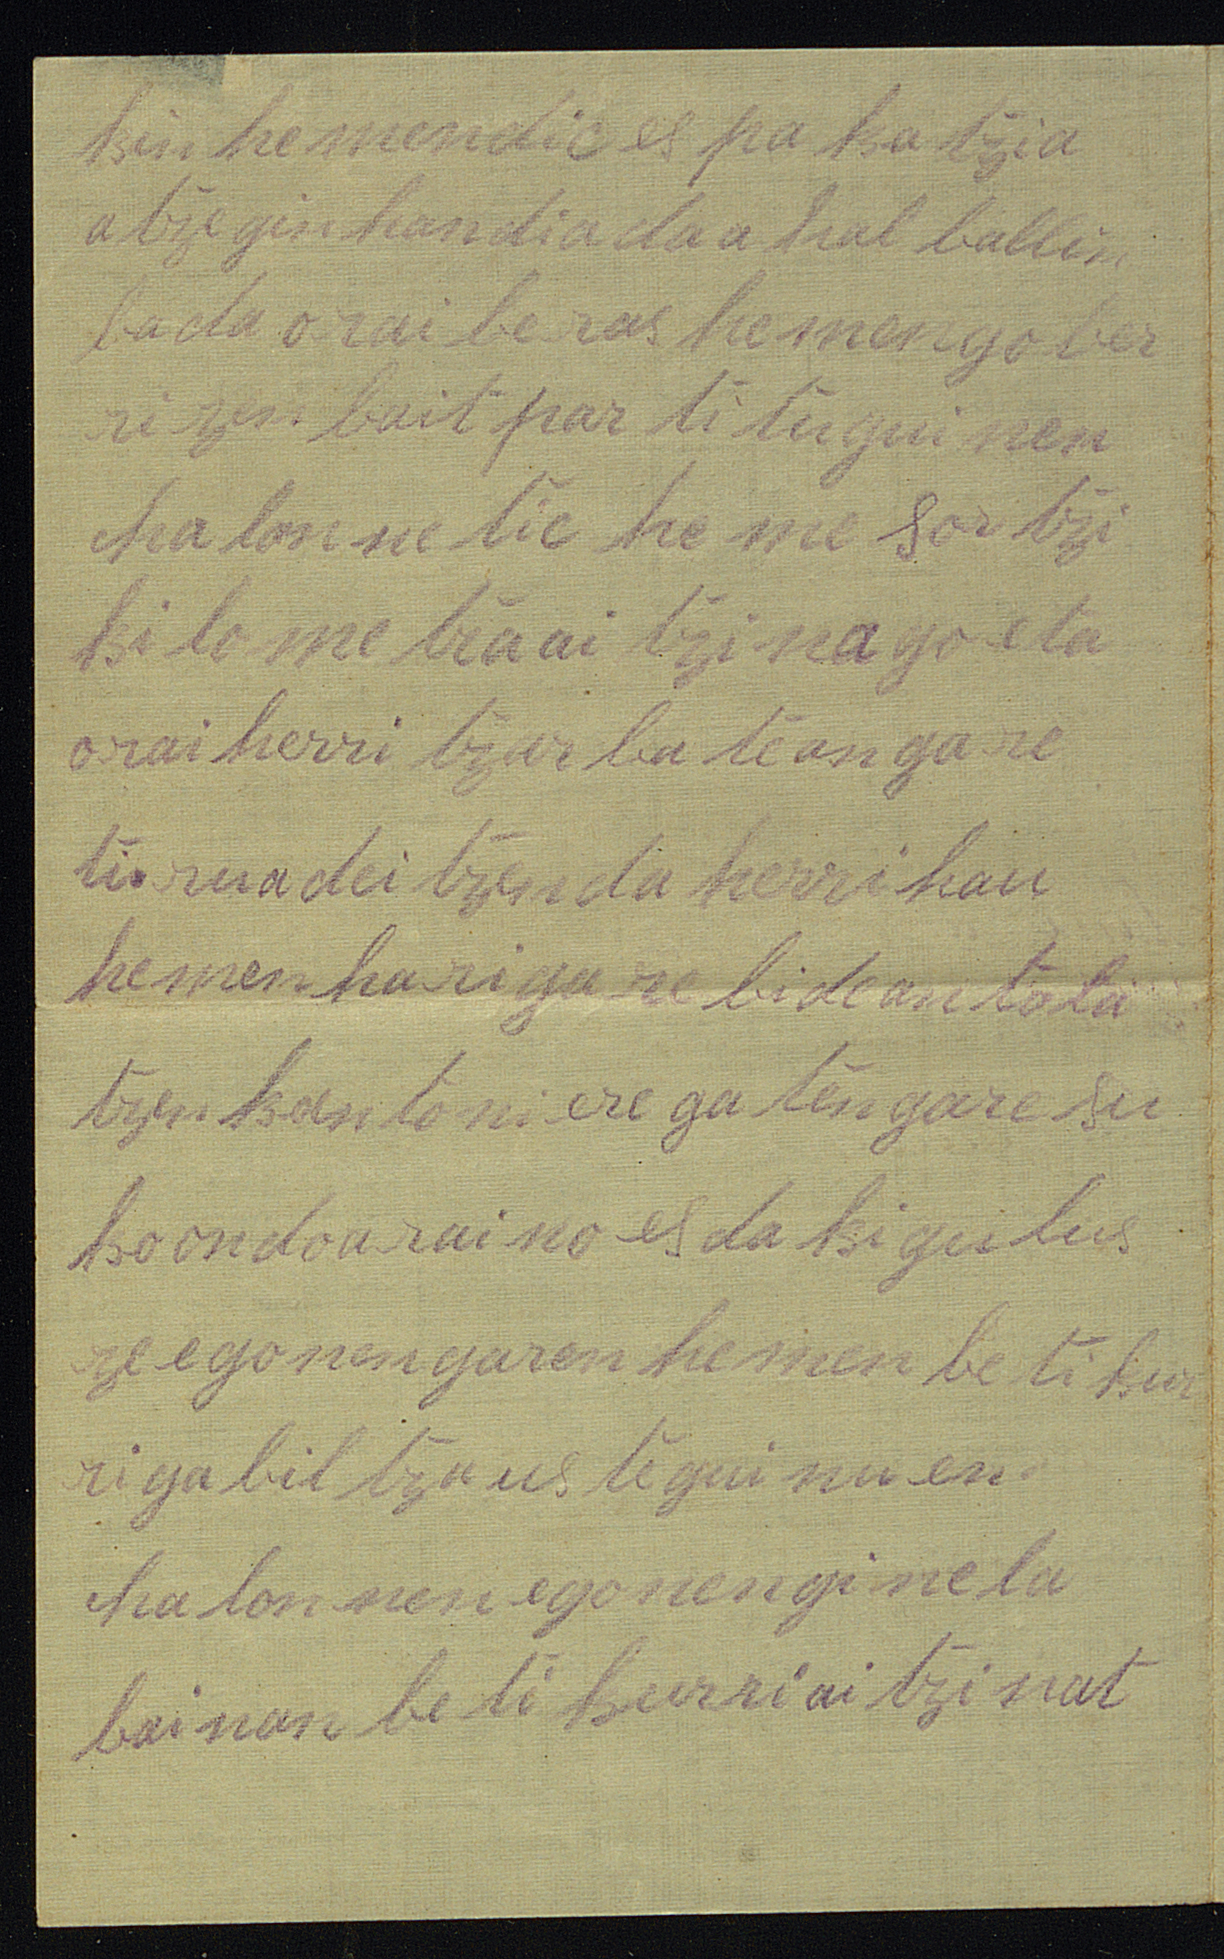 kin hemendic es pa ka tzia
a tze gin handia da a hal ballin
bada orai beras hemengo ber
ri zen bait par ti tu gui nen
cha lon ne tic he me sor tzi
ki lo me tra ai tzi na go eta
orai herri tzar ba te an ga re
ti rua dei tzen da herri hau
hemen hari ga re bidean tola
tzen kantoni ere ga ten gare su
ko ondoa rai no es da ki gu lus
ze egonen garen hemen be ti kur
ri ga bil tza us te gui nu en
cha lon nen egonen gi ne la
bainan be ti kurri ai tzi nat